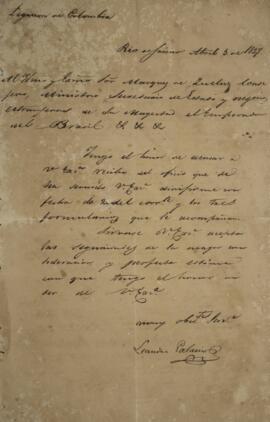 Legacion de Colombia
Rio de Janeiro Abril 3 de 1827
Al Illmo y Exmo Sor Marquez de Queluz Conse
jero, Ministro Secretario de Estado y negocios
extrangeros de Su Magestad el Emperador
del Brasil & & &
Tengo el honor de acusar a
V. Exa. recibo del oficio que se
ha servido V. Exa. dirijirme con
fecha de 2 del corte. y los tres
formularios que le acompañan.
Sirvase V. Exa. aceptar
las seguridades de la mayor con
sideracion y perfecta estima
con que tengo el honor de
ser de V. Exa.
muy obte. Serv.
Leandro Palacios